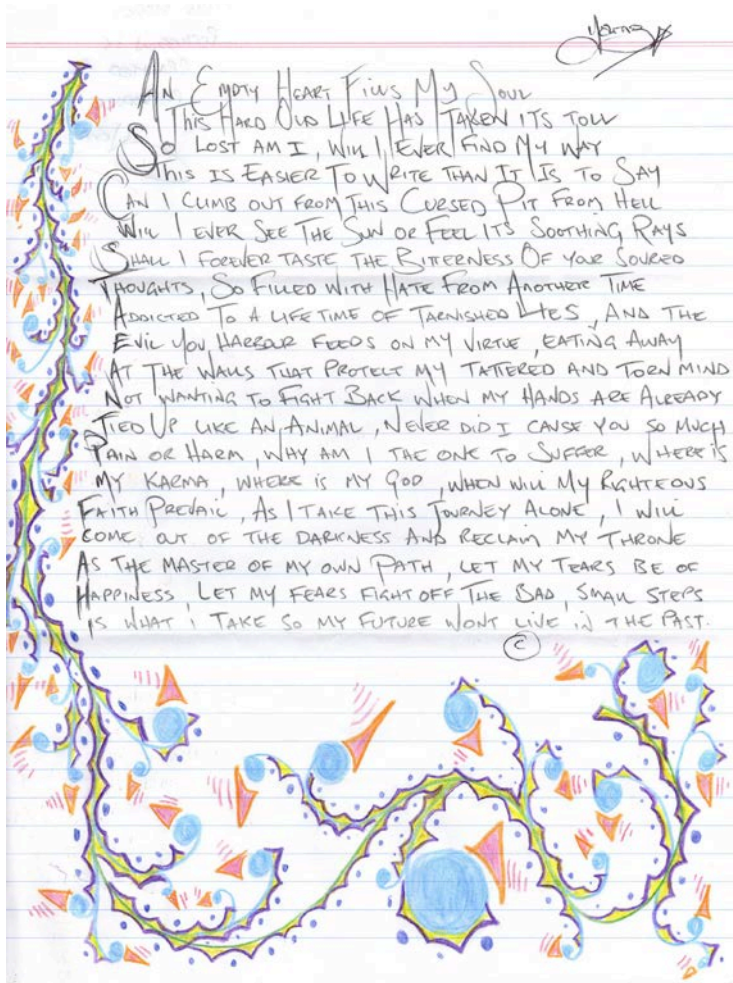 An Empty Heart Fills My Soul
This Hard Old Life Has Taken its toll
So Lost am I, Will I Ever Find My Way
This is Easier To Write Than It Is To Say
Can I Climb out from This Cursed Pit From Hell
Will I ever See The Sun or Feel Its Soothing Rays
Shall I forever taste the Bitterness Of your Soured
Thoughts, So Filled with Hate From Another Time
Addicted To A Lifetime of Tarnished Lies, And the
Evil You Harbour Feeds on my Virtue, eating Away
At The Walls that Protect my Tattered and Torn Mind
Not wanting to Fight Back When my Hands are Already
Tied Up like an Animal, Never did I cause you so much
Pain or Harm, Why am I the one to Suffer, Where is
my Karma, where is my God, when will My Righteous
Faith Prevail, As I Take This Journey Alone, I will
come out of the darkness and reclaim my Throne
As the Master of my own Path, let my Tears be of
Happiness, Let my fears fight off the Bad, Small Steps
is what i Take so my future wont live in the Past.
©